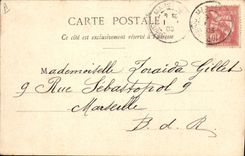 CARTE POSTALE
Ce côté est exclusivement réservé à l'adresse
Mademoiselle Zoraida Gillet
9 Rue Sébastopol 9
Marseille
B. d. R